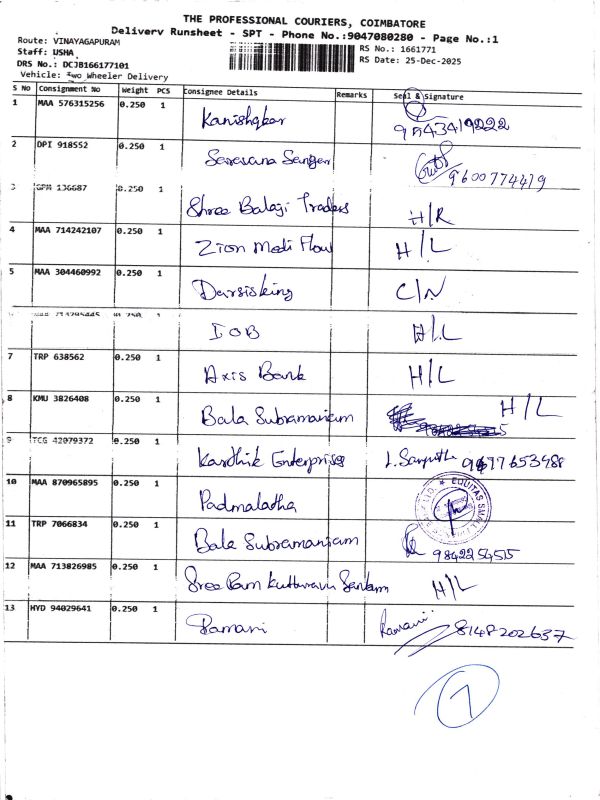 THE PROFESSIONAL COURIERS, COIMBATORE
Delivery Runsheet - SPT - Phone No.:9047080280 - Page No.:1
Route: VINAYAGAPURAM
RS No.: 1661771
Staff: USHA
RS Date: 25-Dec-2025
DRS No.: DCJB166177101
Vehicle: Two Wheeler Delivery
S No Consignment No Weight PCS Consignee Details Remarks Seal & Signature
1 MAA 576315256 0.250 1 Kanishqkar 9543419222
2 DPI 918552 0.250 1 Saravana 9600774419
3 GPM 136687 0.250 1 Shree Balaji Traders H/R
4 MAA 714242107 0.250 1 Zion Medi Flow H/L
5 MAA 304460992 0.250 1 Darsisking C/N
MAA 0.250 1 IOB H/L
7 TRP 638562 0.250 1 Axis Bank H/L
8 KMU 3826408 0.250 1 Bala Subramaniam H/L
9 TCG 42079372 0.250 1 Karthik Enterprises
10 MAA 870965895 0.250 1 Padmaladha EQUITAS SMALL
11 TRP 7066834 0.250 1 Bala Subramaniam 9842254515
12 MAA 713826985 0.250 1 Shree Ram H/L
13 HYD 94029641 0.250 1 Ramani Ramani 8148202637
7